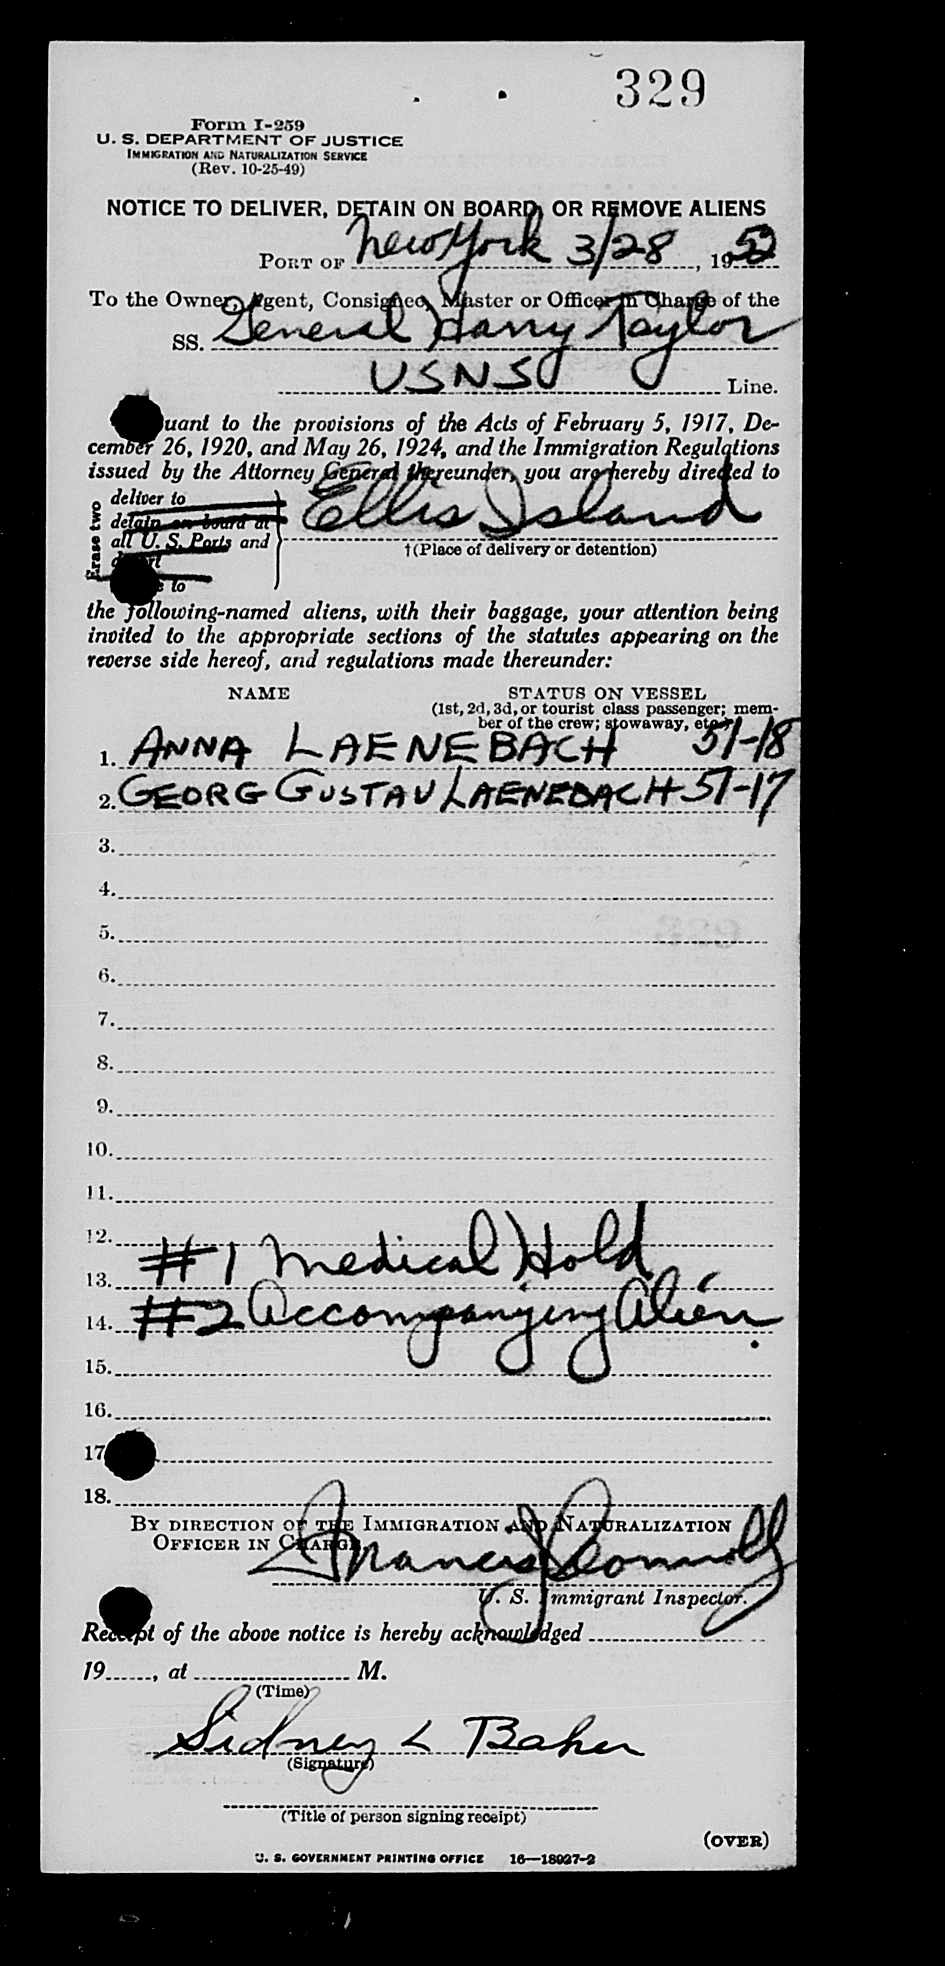 329
Form I-259
U. S. DEPARTMENT OF JUSTICE
IMMIGRATION AND NATURALIZATION SERVICE
(Rev. 10-25-49)
NOTICE TO DELIVER, DETAIN ON BOARD, OR REMOVE ALIENS
PORT OF New York 3/28, 1952
To the Owner, Agent, Consignee, Master or Officer in Charge of the
SS. General Harry Taylor
USNS Line.
uant to the provisions of the Acts of February 5, 1917, De-
cember 26, 1920, and May 26, 1924, and the Immigration Regulations
issued by the Attorney General thereunder, you are hereby directed to
Erase two
deliver to
detain on board at
all U. S. Ports and
to
Ellis Island
†(Place of delivery or detention)
the following-named aliens, with their baggage, your attention being
invited to the appropriate sections of the statutes appearing on the
reverse side hereof, and regulations made thereunder:
NAME STATUS ON VESSEL
(1st, 2d, 3d, or tourist class passenger; mem-
ber of the crew; stowaway, etc.)
1. ANNA LAENEBACH 51-18
2. GEORG GUSTAV LAENEBACH 51-17
3.
4.
5.
6.
7.
8.
9.
10.
11.
12.
13. #1 Medical Hold
14. #2 Accompanying Alien.
15.
16.
17
18.
BY DIRECTION OF THE IMMIGRATION AND NATURALIZATION
OFFICER IN CHARGE,
Francis J Connolly
U. S. Immigrant Inspector.
Receipt of the above notice is hereby acknowledged
19, at M.
(Time)
Sidney L Baker
(Signature)
(Title of person signing receipt)
(OVER)
U. S. GOVERNMENT PRINTING OFFICE 16—18027-2